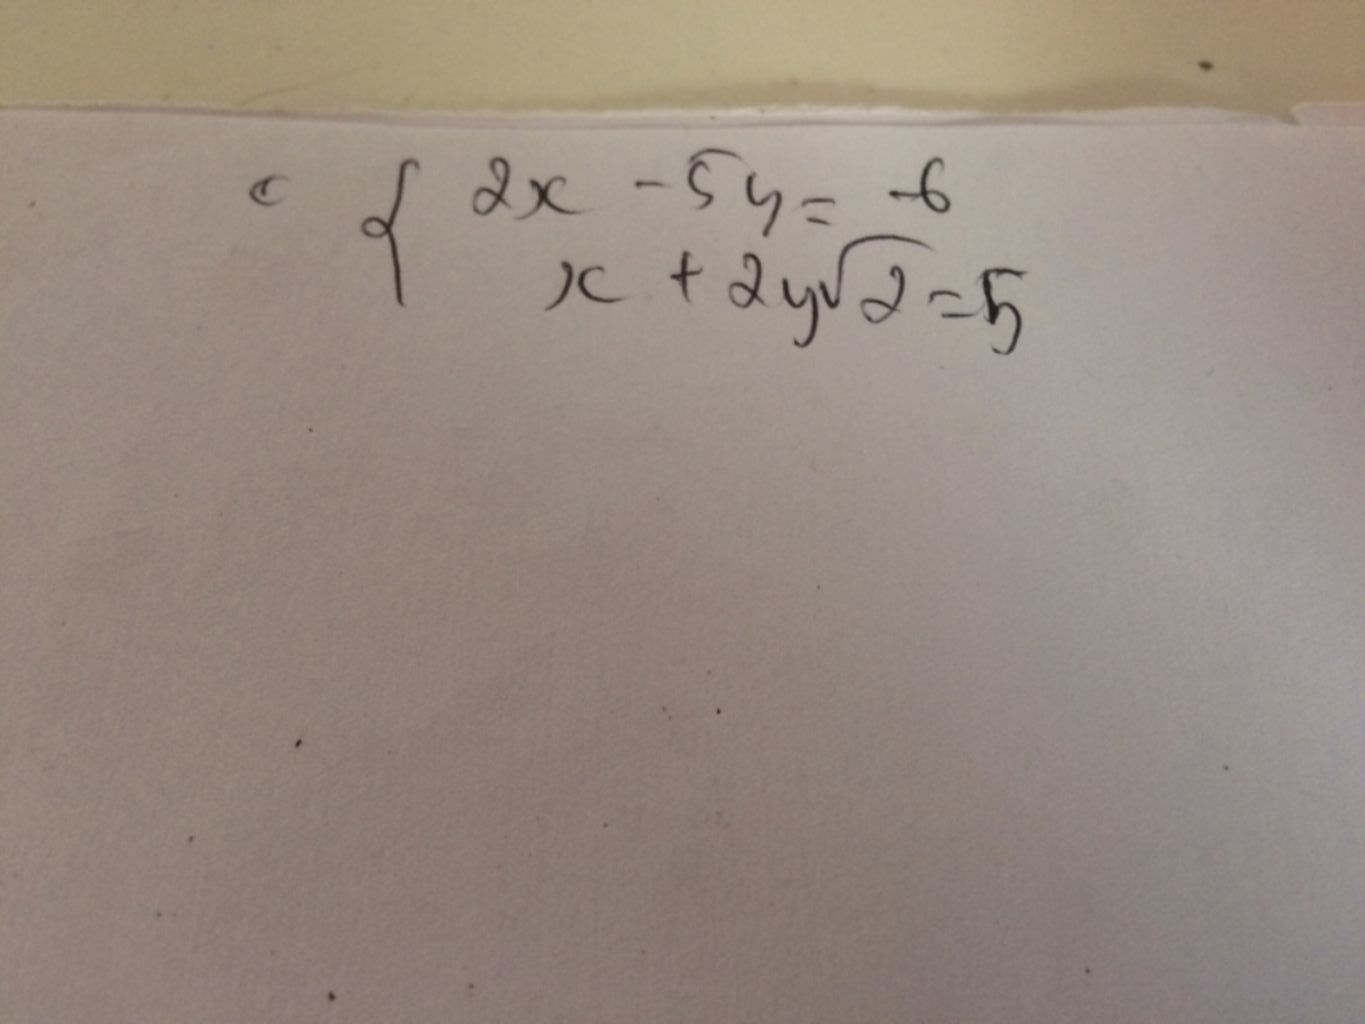 c { 2x - 5y = -6
x + 2y√2 = 5